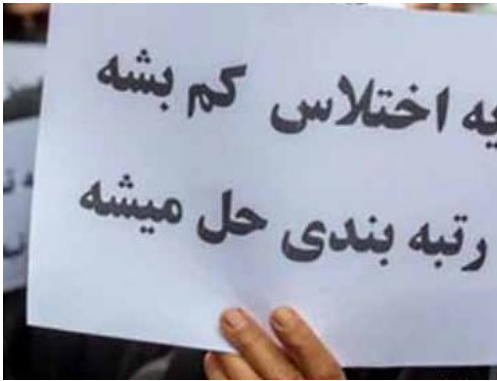 یه اختلاس کم بشه
رتبه بندی حل میشه